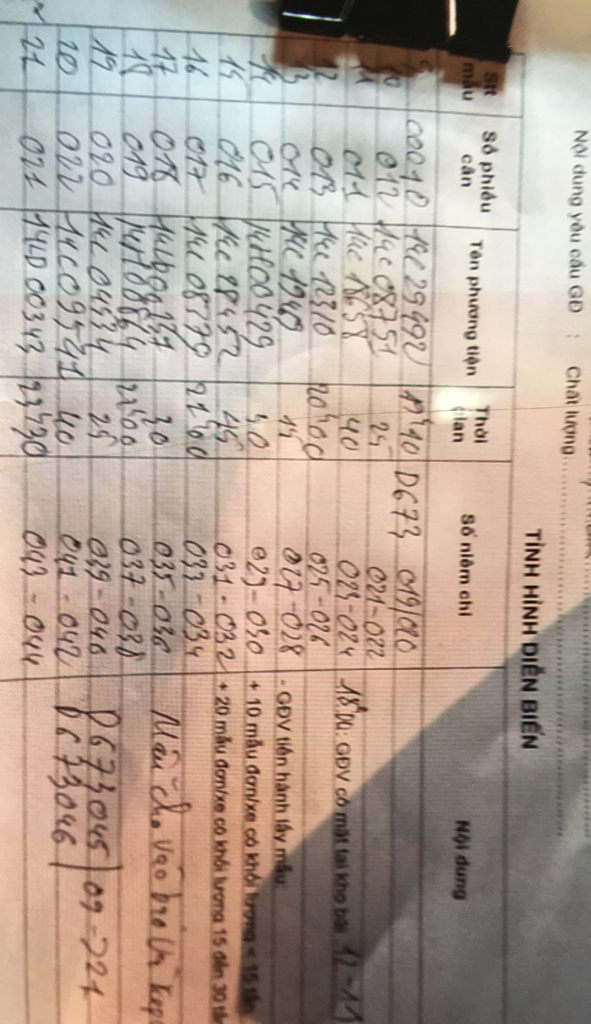 Nội dung yêu cầu GĐ : Chất lượng
TÌNH HÌNH DIỄN BIẾN
Stt mẫu Số phiếu cân Tên phương tiện Thời gian Số niêm chì Nội dung
00010 14C 29492 19h10 D673 019/020
10 012 14C 08751 25 021-022
11 011 14C 18658 40 023-024 18h00: GĐV có mặt tại kho bãi 12-11
12 013 14C 12310 20h00 025-026
13 014 14C 1940 15 027-028 - GĐV tiến hành lấy mẫu
14 015 30 029-030 + 10 mẫu đơn/xe có khối lượng < 15 tấn
15 016 14C 88452 45 031-032 + 20 mẫu đơn/xe có khối lượng 15 đến 30 tấn
16 017 14C 08579 21h00 033-034
17 018 30 035-036 Mẫu cho vào
18 019 22h00 037-038
19 020 14C 04534 25 039-040 D673045 09-221
20 022 14C 09541 40 041-042 D673046
21 021 14LD 00343 23h30 043-044